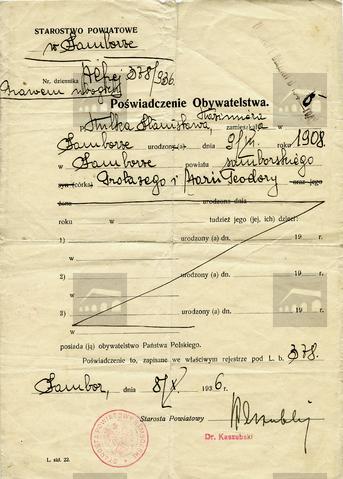 STAROSTWO POWIATOWE
w Samborze
Nr. dziennika 378/936
Prawem ubogich
Poświadczenie Obywatelstwa.
Kazimiera
p. Stanisława, zamieszkała w
Samborze urodzony (a) dn. 1908
w Samborze powiatu samborskiego
syn (córka) i Marii Teodory oraz jego
żona urodzona dnia
roku w tudzież jego (jej, ich) dzieci:
1) urodzony (a) dn. 19 r.
w
2) urodzony (a) dn. 19 r.
w
3) urodzony (a) dn. 19 r.
w
posiada (ją) obywatelstwo Państwa Polskiego.
Poświadczenie to, zapisane we właściwym rejestrze pod L. b. 378.
Sambor, dnia 8/X 1936 r.
Starosta Powiatowy
Dr. Kaszubski
L. skł. 22.